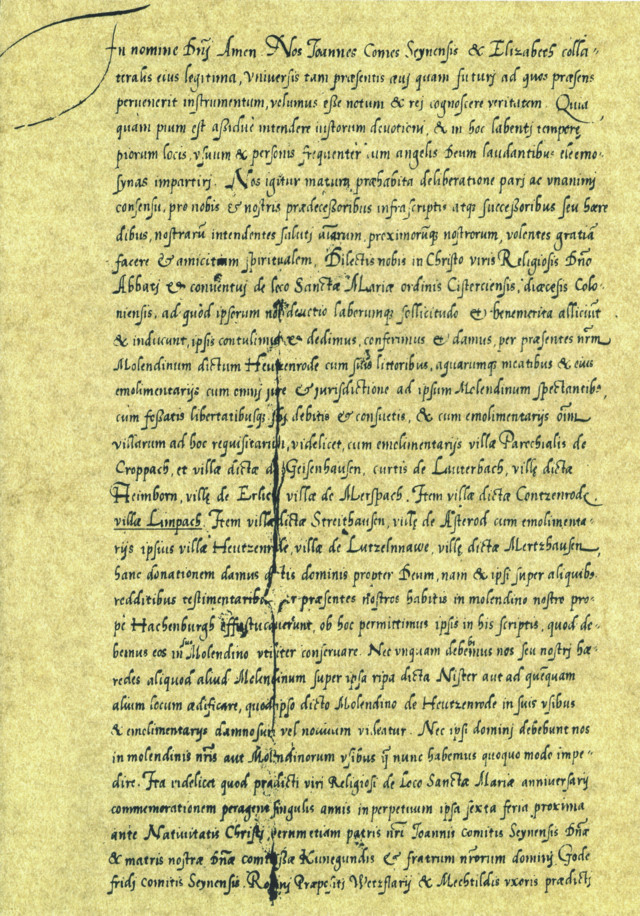 In nomine Dnj Amen Nos Joannes Comes Seynensis & Elizabeth colla-
teralis eius legitima, Vniversis tam præsentis æuj quam futurj ad quos præsens
peruenerit instrumentum, volumus eße notum & rej cognoscere veritatem. Quia
quam pium est aßiduè intendere iustorum deuotionj, & in hoc labentj tempore
piorum locis, vsuum & personis frequenter cum angelis Deum laudantibus eleemo-
synas impartirj. Nos igitur matura præhabita deliberatione parj ac vnanimj
consensu, pro nobis & nostris prædeceßoribus infrascriptis atque succeßoribus seu hære
dibus, nostrarũ intendentes salutj aĩarum, proximorumque nostrorum, volentes gratiã
facere & amicitiam spiritualem, Dilectis nobis in Christo viris Religiosis Dño
Abbatj & conventuj de loco Sanctæ Mariæ ordinis Cisterciensis, diæcesis Colo-
niensis, ad quòd ipsorum nos deuotio laborumque sollicitudo & benemerita alliciũt
& inducunt, ipsis contulimus & dedimus, conferimus & damus, per præsentes nrm
Molendinum dictum Heutzenrode cum suis littoribus, aquarumque meatibus & eius
emolimentarijs cum omnj jure & jurisdictione ad ipsum Molendinum spectantibus,
cum foßatis libertatibusque sibi debitis & consuetis, & cum emolimentarijs oĩm
villarum ad hoc requisitarum, videlicet, cum emolimentarijs villæ Parechialis de
Croppach, et villæ dictæ de Geisenhausen, curtis de Lauterbach, villę dictæ
Heimborn, villę de Erlich villæ de Merspach. Item villæ dictæ Contzenrode,
villæ Limpach. Item villæ dictæ Streithausen, villę de Asterod cum emolimenta-
rijs ipsius villæ Heutzenrode, villæ de Lutzelnnawe, villę dictæ Mertzhausen,
hanc donationem damus dictis dominis propter Deum, nam & ipsi super aliquibus
redditibus testimentaribus per præsentes nostros habitis in molendino nostro pro-
pe Hachenburgh effestucquerunt, ob hoc permittimus ipsis in his scriptis, quod de-
bemus eos in suo Molendino vtiliter conseruare. Nec vnquam debebimus nos seu nostrj hæ-
redes aliquod aliud Molendinum super ipsa ripa dicta Nister aut ad quemquam
alium locum ædificare, quod ipso dicto Molendino de Heutzenrode in suis vsibus
& emolimentarijs damnosum vel nociuum videatur. Nec ipsi dominj debebunt nos
in molendinis nrīs aut Molendinorum vsibus q̃ nunc habemus quoquo modo impe-
dire. Ita videlicet quod prædicti viri Religiosi de Loco Sanctæ Mariæ anniversarij
commemorationem peragent singulis annis in perpetuum ipsa sexta feria proxima
ante Natiuitatis Christj, rerum etiam patris nrī Joannis comitis Seynensis Dñæ
& matris nostræ Dñæ comitißæ Kunegundis & fratrum nrorum dominj Gode
fridj comitis Seynensis. Præpositj Wetzflarij & Mechtildis vxoris prædictj